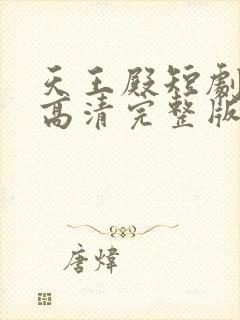 天王殿短劇
高清完整版
唐煒